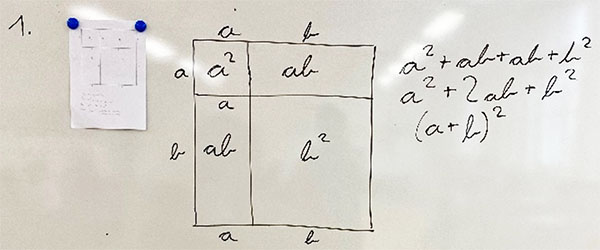 1.
a b
a a² ab
a
b ab b²
a b
a² + ab + ab + b²
a² + 2ab + b²
(a + b)²